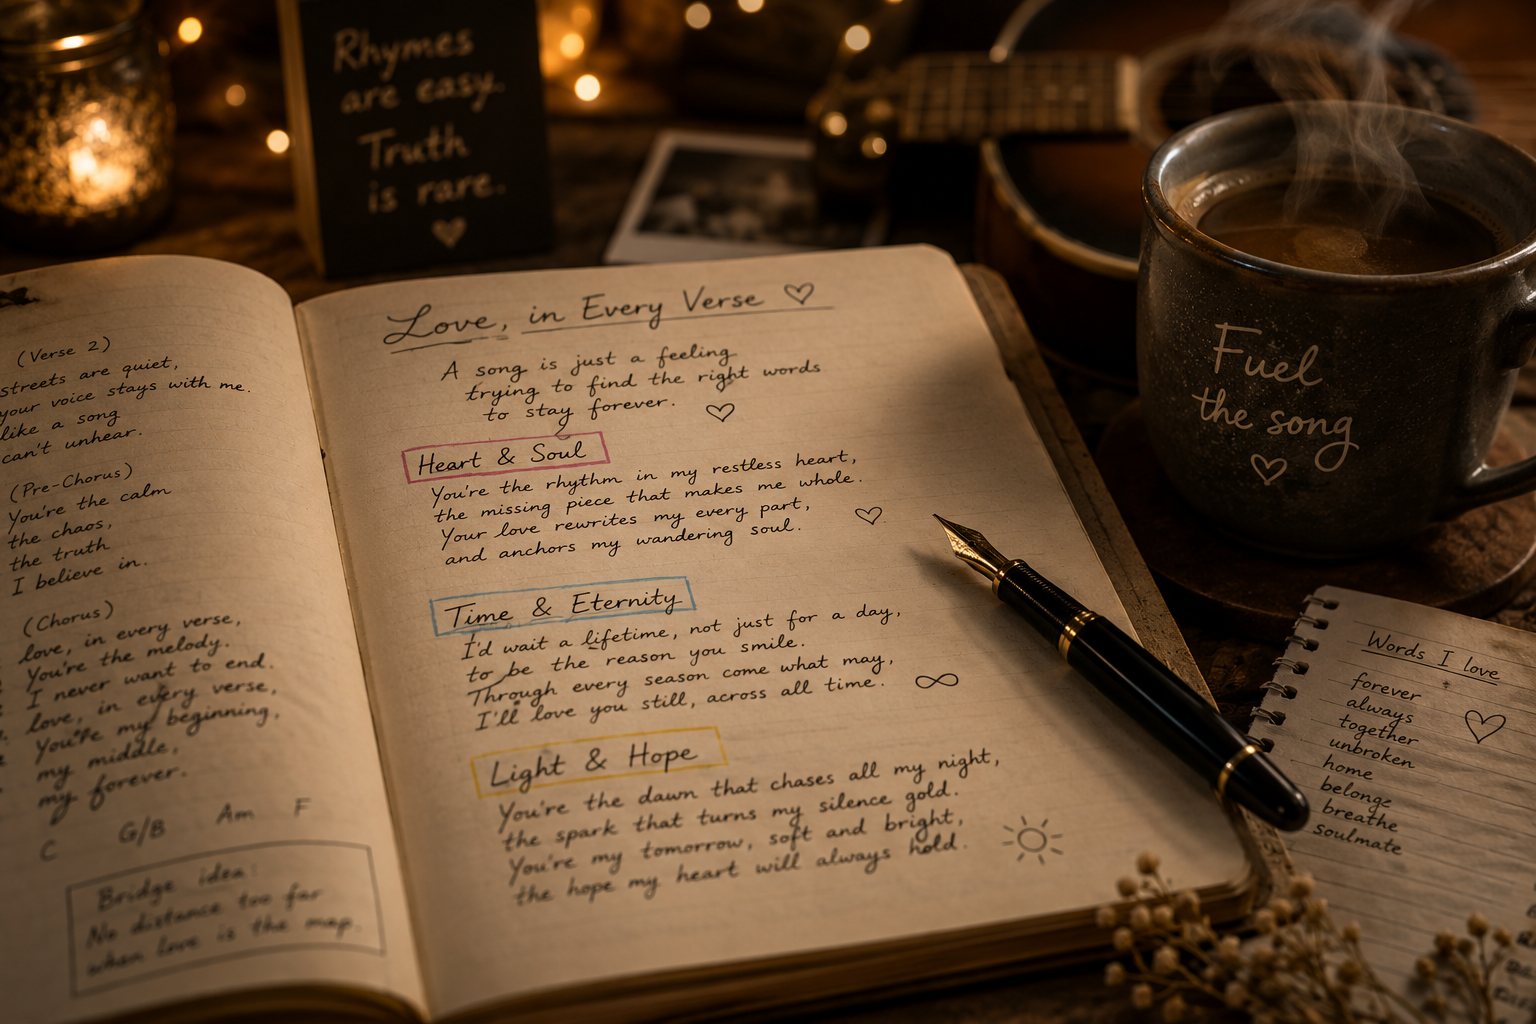 Rhymes
are easy.
Truth
is rare.
(Verse 2)
streets are quiet,
your voice stays with me.
like a song
can't unhear.
(Pre-Chorus)
You're the calm
the chaos,
the truth
I believe in.
(Chorus)
love, in every verse,
You're the melody.
I never want to end.
love, in every verse,
You're my beginning,
my middle,
my forever.
C G/B Am F
Bridge idea:
No distance too far
when love is the map.
Love, in Every Verse
A song is just a feeling
trying to find the right words
to stay forever.
Heart & Soul
You're the rhythm in my restless heart,
the missing piece that makes me whole.
Your love rewrites my every part,
and anchors my wandering soul.
Time & Eternity
I'd wait a lifetime, not just for a day,
to be the reason you smile.
Through every season come what may,
I'll love you still, across all time.
Light & Hope
You're the dawn that chases all my night,
the spark that turns my silence gold.
You're my tomorrow, soft and bright,
the hope my heart will always hold.
Fuel
the song
Words I love
forever
always
together
unbroken
home
belong
breathe
soulmate